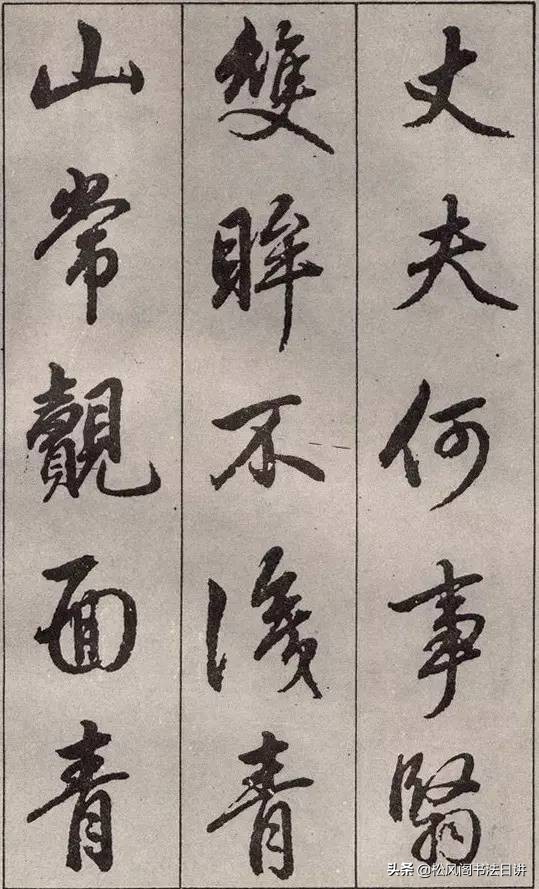 丈夫何事翳
雙眸不識青
山常覿面青
头条 @松风阁书法日讲